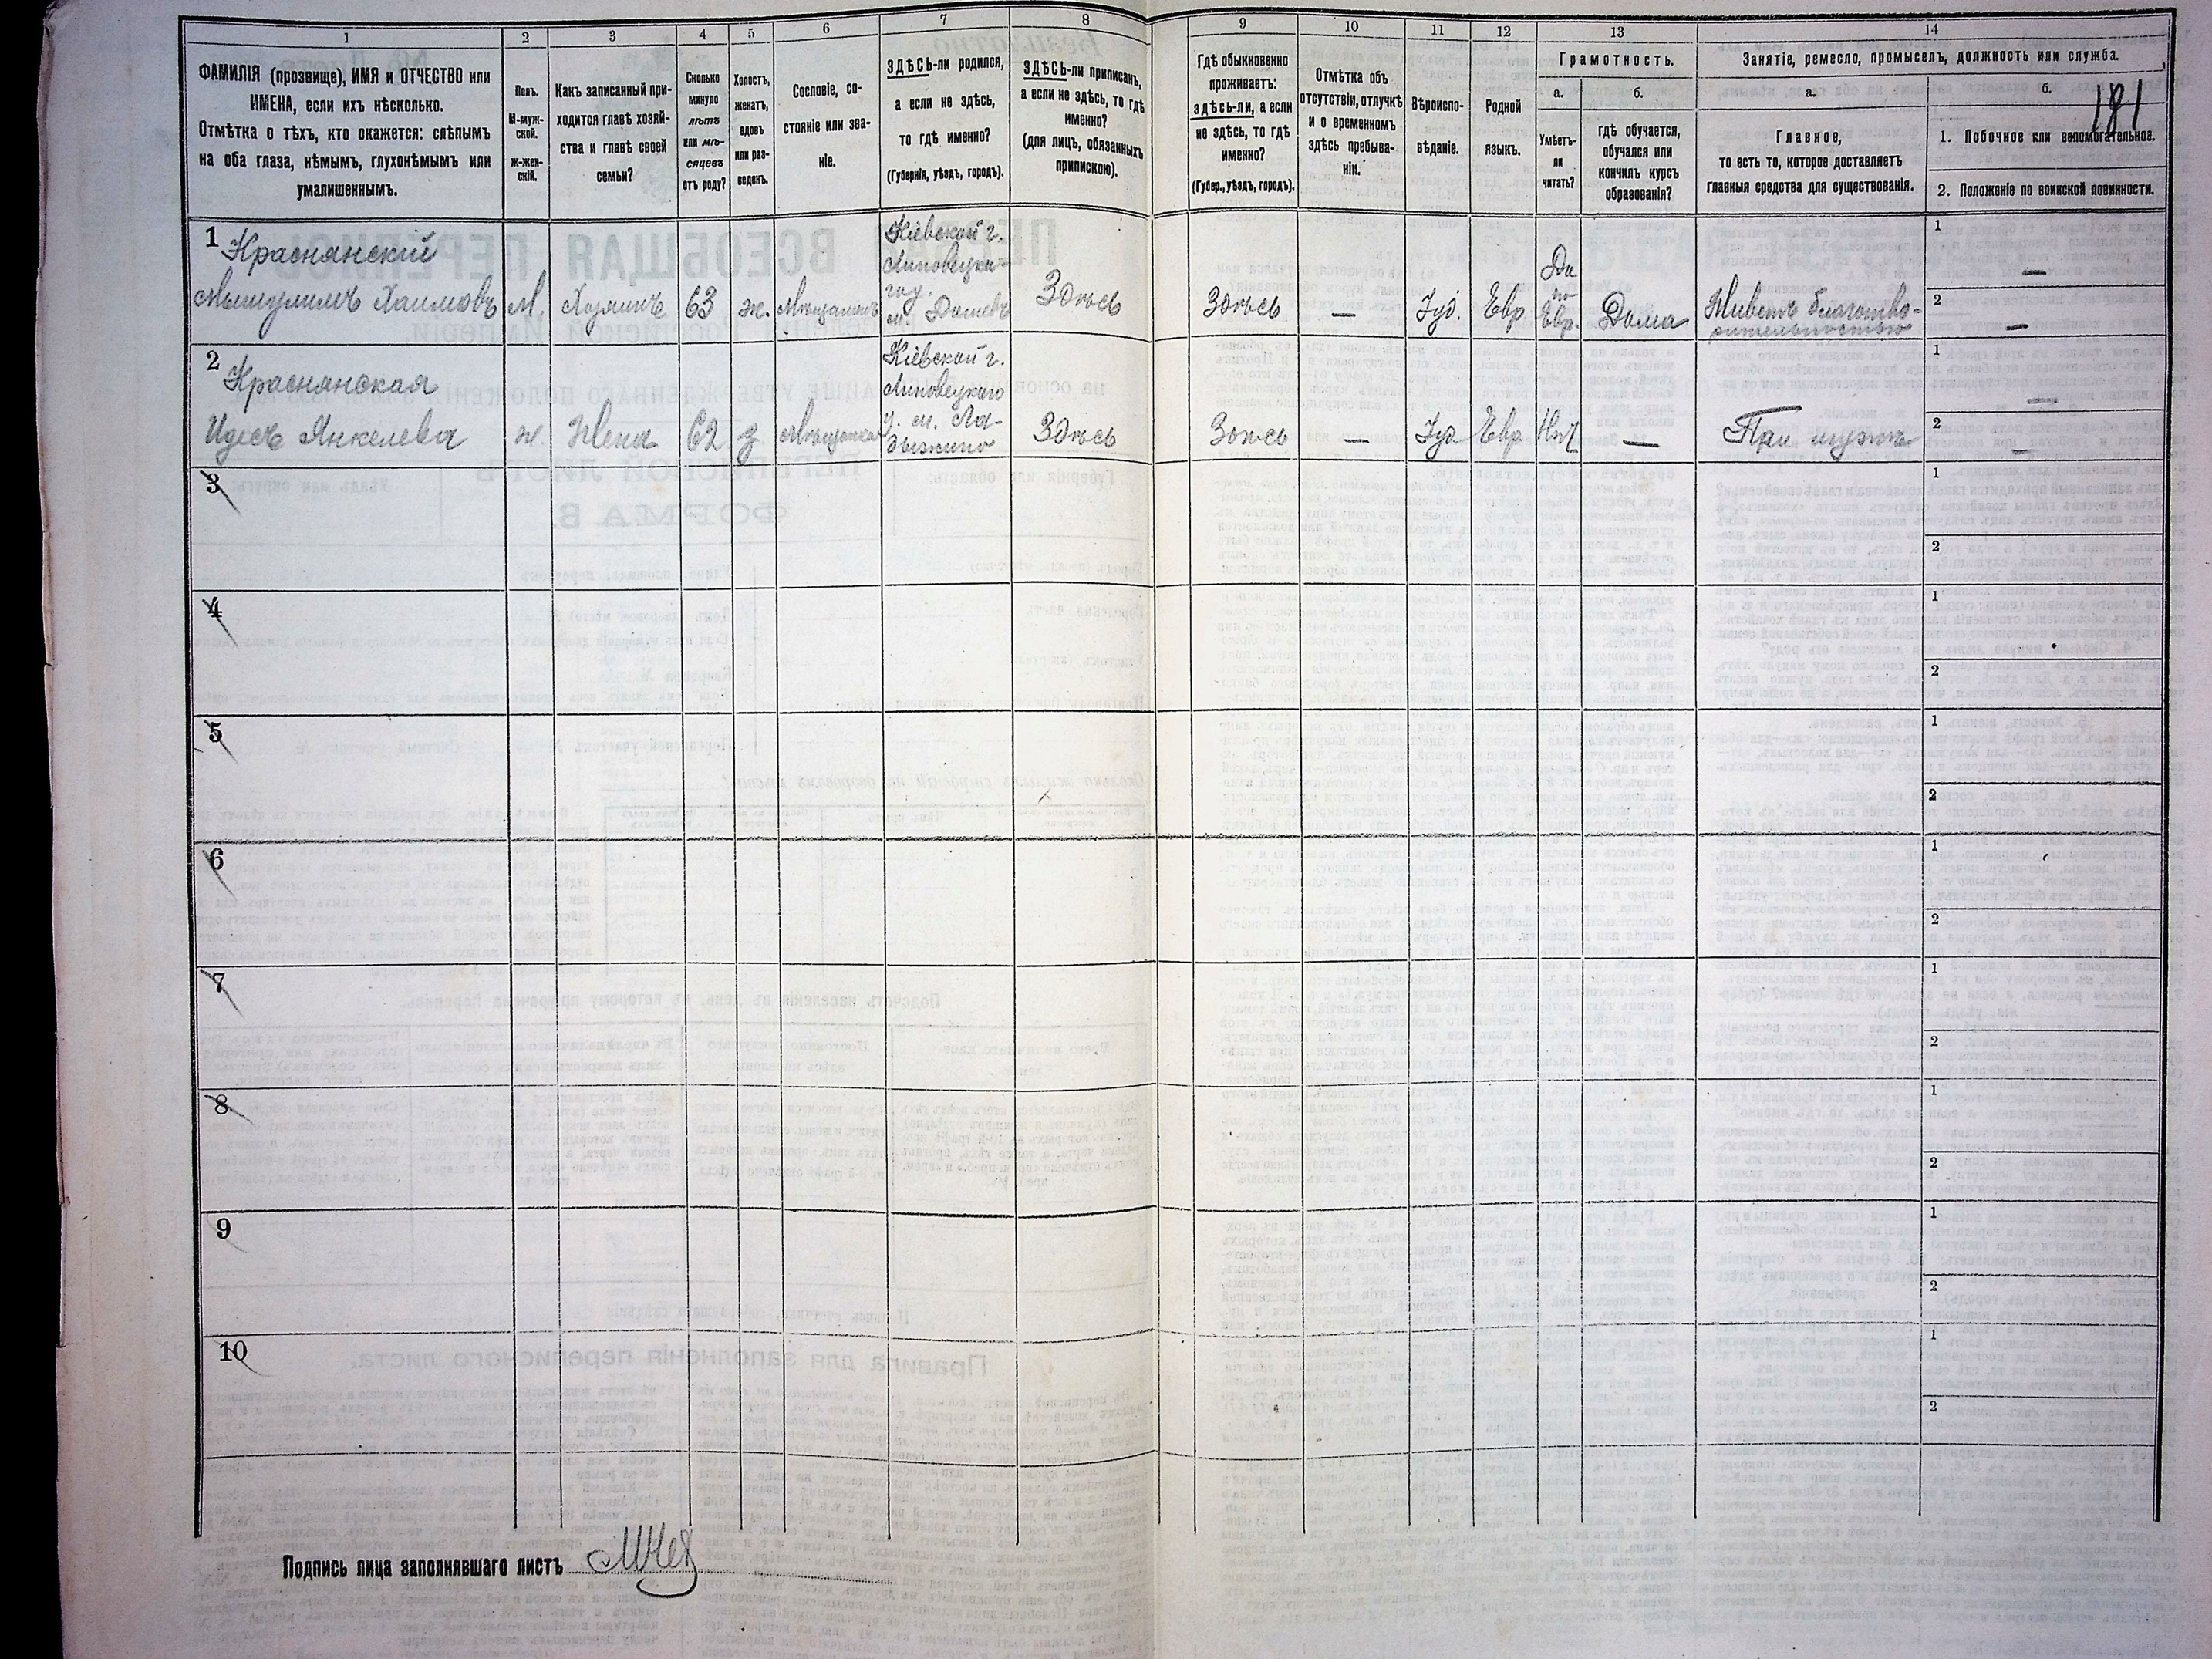 1
2
3
4
5
6
7
8
9
10
11
12
13
14
ФАМИЛІЯ (прозвище), ИМЯ и ОТЧЕСТВО или
ИМЕНА, если ихъ нѣсколько.
Отмѣтка о тѣхъ, кто окажется: слѣпымъ
на оба глаза, нѣмымъ, глухонѣмымъ или
умалишеннымъ.
Полъ.
М-муж-
ской.
ж-жен-
скій.
Какъ записанный при-
ходится главѣ хозяй-
ства и главѣ своей
семьи?
Сколько
минуло
лѣтъ
или мѣ-
сяцевъ
отъ роду?
Холостъ,
женатъ,
вдовъ
или раз-
веденъ.
Сословіе, со-
стояніе или зва-
ніе.
ЗДѢСЬ-ли родился,
а если не здѣсь,
то гдѣ именно?
(Губернія, уѣздъ, городъ).
ЗДѢСЬ-ли приписанъ,
а если не здѣсь, то гдѣ
именно?
(для лицъ, обязанныхъ
припискою).
Гдѣ обыкновенно
проживаетъ:
здѣсь-ли, а если
не здѣсь, то гдѣ
именно?
(Губер., уѣздъ, городъ).
Отмѣтка объ
отсутствіи, отлучкѣ
и о временномъ
здѣсь пребыва-
ніи.
Вѣроиспо-
вѣданіе.
Родной
языкъ.
Грамотность.
а.
б.
Умѣетъ-
ли
читать?
гдѣ обучается,
обучался или
кончилъ курсъ
образованія?
Занятіе, ремесло, промыселъ, должность или служба.
а.
б.
181
Главное,
то есть то, которое доставляетъ
главныя средства для существованія.
1. Побочное или вспомогательное.
2. Положеніе по воинской повинности.
1 Краснянскій
Хаимовъ
М.
Хозяинъ
63
ж.
Мѣщанинъ
Кіевской г.
Липовецка-
го у.
м. Дашевъ
Здѣсь
Здѣсь
—
Іуд.
Евр.
Да
по
Евр.
Дома
Живетъ благотво-
рительностью
1 —
2 —
2 Краснянская
Идесъ Янкелева
ж.
Жена
62
з
Мѣщанка
Кіевской г.
Липовецкаго
у. м. Ла-
дыжино
Здѣсь
Здѣсь
—
Іуд.
Евр.
Нѣт
—
При мужѣ
1 —
2 —
3
1
2
4
1
2
5
1
2
6
1
2
7
1
2
8
1
2
9
1
2
10
1
2
Подпись лица заполнявшаго листъ